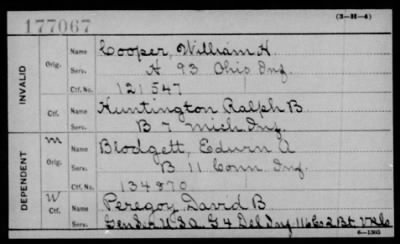 (3-H-4)
177067
INVALID
Orig.
Name Cooper, William H.
Serv. H 93 Ohio Inf.
Ctf. No. 121547
Ctf.
Name Huntington Ralph B.
Serv. B 7 Mich Inf.
DEPENDENT
m
Orig.
Name Blodgett, Edwin A
Serv. B 11 Conn Inf.
Ctf. No. 134870
W
Ctf.
Name Peregoy, David B
Serv. Gen Ser U.S.A. G 4 Del Inf 116 Co 2 Bt V.R.C
6-1305